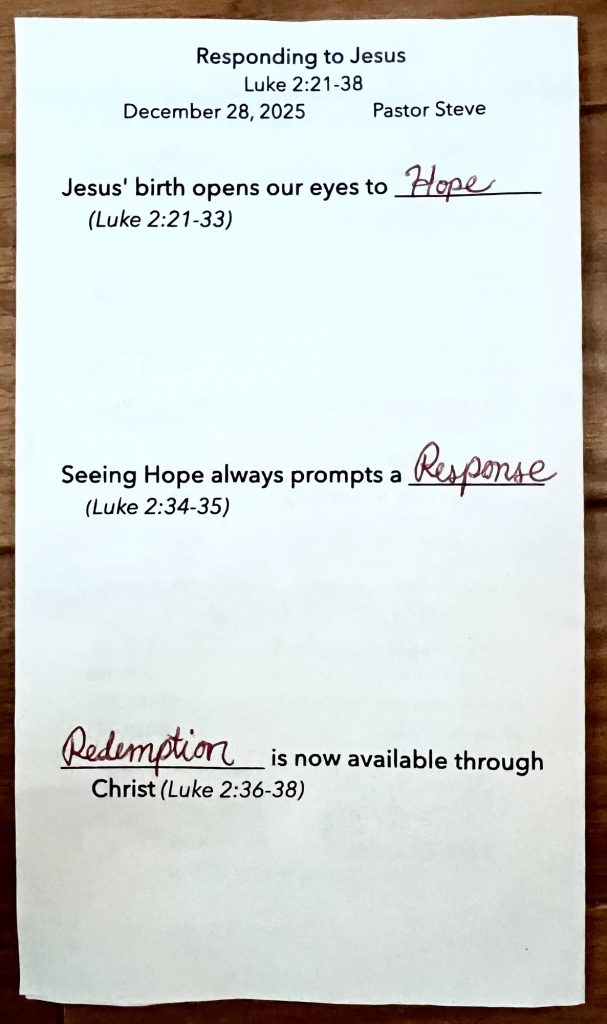 Responding to Jesus
Luke 2:21-38
December 28, 2025 Pastor Steve
Jesus' birth opens our eyes to Hope
(Luke 2:21-33)
Seeing Hope always prompts a Response
(Luke 2:34-35)
Redemption is now available through
Christ (Luke 2:36-38)